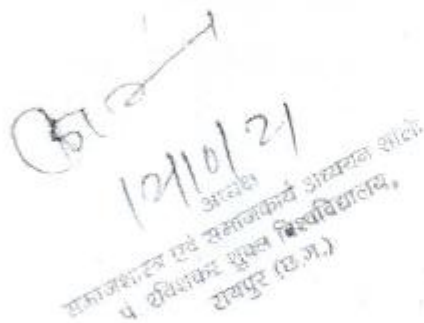 अध्यक्ष
समाजशास्त्र एवं समाजकार्य अध्ययन शाला
पं रविशंकर शुक्ल विश्वविद्यालय,
रायपुर (छ.ग.)